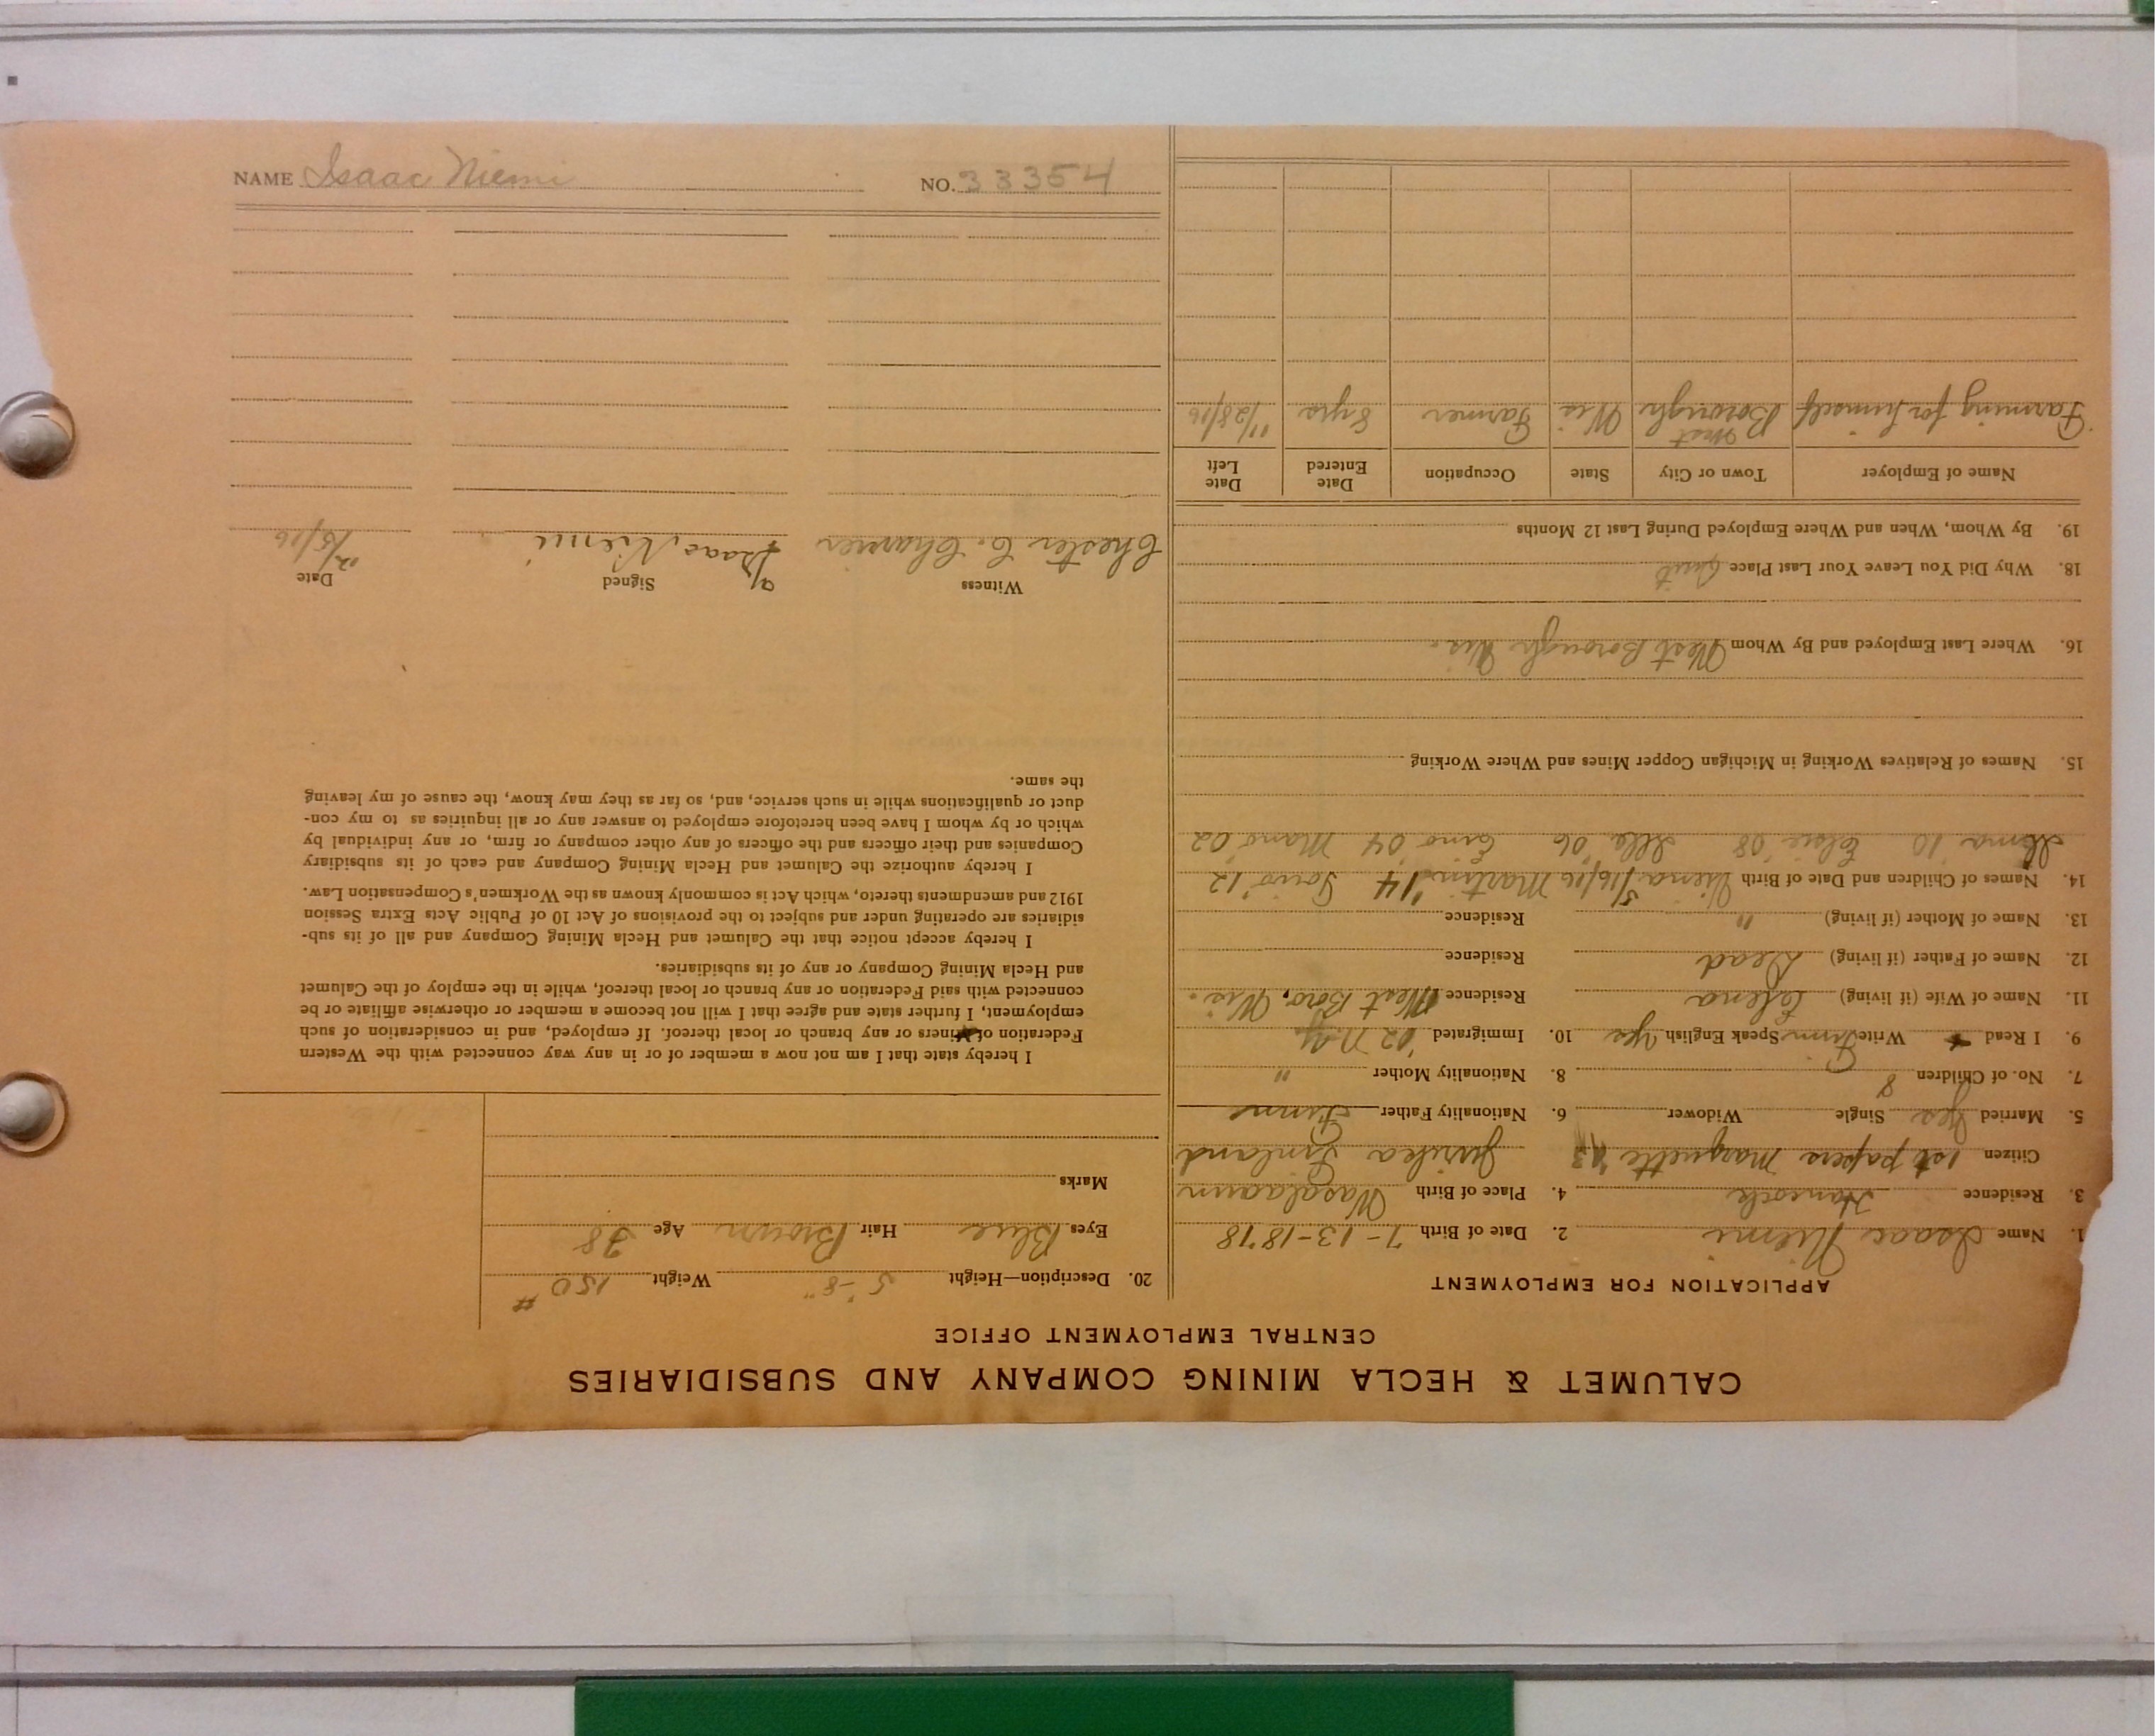 CALUMET & HECLA MINING COMPANY AND SUBSIDIARIES
CENTRAL EMPLOYMENT OFFICE
APPLICATION FOR EMPLOYMENT
1. Name Isaac Niemi 2. Date of Birth 7-13-1878
3. Residence Hancock 4. Place of Birth Wasalaann
Citizen 1st papers Marquette '13 Finland
5. Married Yes Single Widower 6. Nationality Father Finne
7. No. of Children 8 8. Nationality Mother "
9. I Read Write Finn Speak English Yes 10. Immigrated '02 N.Y.
11. Name of Wife (if living) Residence West Boro, Wis.
12. Name of Father (if living) Dead Residence
13. Name of Mother (if living) " Residence
14. Names of Children and Date of Birth 5/16/16 Martin '14 '12
'10 Elsie '08 '06 Eino '04 '02
15. Names of Relatives Working in Michigan Copper Mines and Where Working
16. Where Last Employed and By Whom West Borough Wis.
18. Why Did You Leave Your Last Place Quit
19. By Whom, When and Where Employed During Last 12 Months
Name of Employer Town or City State Occupation Date Entered Date Left
Farming for himself West Borough Wis Farmer 8 yrs 11/28/16
20. Description—Height 5'-8" Weight 150 #
Eyes Blue Hair Brown Age 38
Marks
I hereby state that I am not now a member of or in any way connected with the Western
Federation of Miners or any branch or local thereof. If employed, and in consideration of such
employment, I further state and agree that I will not become a member or otherwise affiliate or be
connected with said Federation or any branch or local thereof, while in the employ of the Calumet
and Hecla Mining Company or any of its subsidiaries.
I hereby accept notice that the Calumet and Hecla Mining Company and all of its sub-
sidiaries are operating under and subject to the provisions of Act 10 of Public Acts Extra Session
1912 and amendments thereto, which Act is commonly known as the Workmen's Compensation Law.
I hereby authorize the Calumet and Hecla Mining Company and each of its subsidiary
Companies and their officers and the officers of any other company or firm, or any individual by
which or by whom I have been heretofore employed to answer any or all inquiries as to my con-
duct or qualifications while in such service, and, so far as they may know, the cause of my leaving
the same.
Witness Signed Date
Chester C. Isaac Niemi 12/5/16
NAME Isaac Niemi NO. 33354